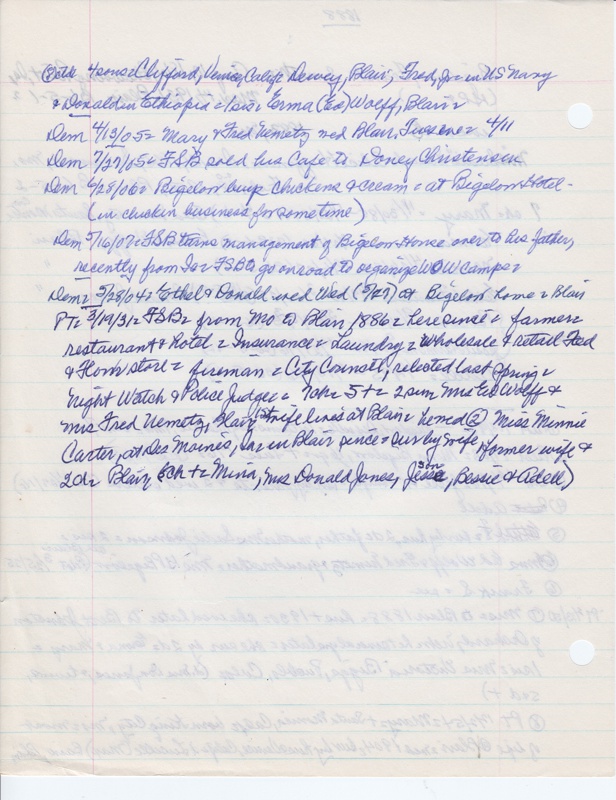 4 sons = Clifford, Venice, Calif = Dewey, Blair, Fred, Jr = in US Navy
& Donald in Ethiopia = 1 da = Erma (Ed) Wolff, Blair =
Dem 4/13/05 = Mary & Fred Nemetz wed Blair, Tues eve = 4/11
Dem 7/27/05 = FSB sold his Cafe to Doney Christensen
Dem 6/28/06 = Bigelow buys chickens & cream = at Bigelow Hotel -
(in chicken business for sometime)
Dem 5/16/07 = FSB turns management of Bigelow House over to his father,
recently from Ia = FSB to go on road to organize WOW camps =
Dem 3/28/04 = Ethel & Donald wed Wed (3/27) at Bigelow home = Blair
PT = 3/19/31 = FSB = from Mo to Blair, 1886 = here since = farmer =
restaurant & hotel = Insurance = Laundry = Wholesale & retail Feed
& Flour store = fireman = City Council, relected last spring =
Night Watch & Police Judge = 7 ch = 5 + = 2 surv Mrs Ed Wolff &
Mrs Fred Nemetz, Blair, 1st wife lives at Blair = he wed ② Miss Minnie
Carter, at Des Moines, Ia = in Blair since = surv by wife, former wife &
2 da = Blair, 6 ch + = Mina, Mrs Donald Jones, Jesse, son, Bessie & Adell)